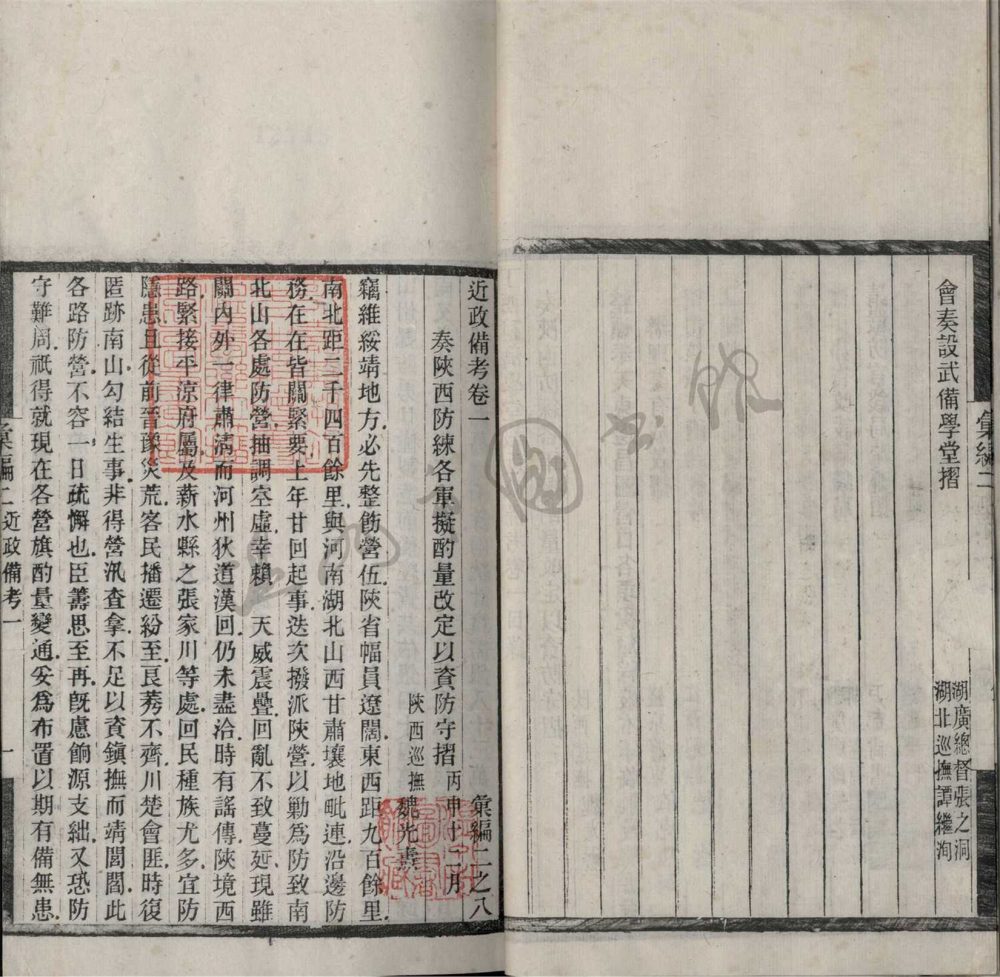 會奏設武備學堂摺
湖廣總督張之洞
湖北巡撫譚繼洵
彙編二
近政備考卷一
彙編二之八
奏陝西防練各軍擬酌量改定以資防守摺
丙申十二月
陝西巡撫
魏光燾
竊維綏靖地方必先整飭營伍陝省幅員遼闊東西距九百餘里
南北距二千四百餘里與河南湖北山西甘肅壤地毗連沿邊防
務在在皆關緊要上年甘回起事迭次撥派陝營以勦為防致南
北山各處防營抽調空虛幸賴 天威震疊回亂不致蔓延現雖
關內外一律肅淸而河州狄道漢回仍未盡洽時有謠傳陝境西
路緊接平涼府屬及薪水縣之張家川等處回民種族尤多宜防
隱患且從前晉豫災荒客民播遷紛至良莠不齊川楚會匪時復
匿跡南山勾結生事非得營汛查拿不足以資鎭撫而靖閭閻此
各路防營不容一日疏懈也臣籌思至再旣慮餉源支絀又恐防
守難周祇得就現在各營旗酌量變通妥爲布置以期有備無患
彙編二近政備考一
一